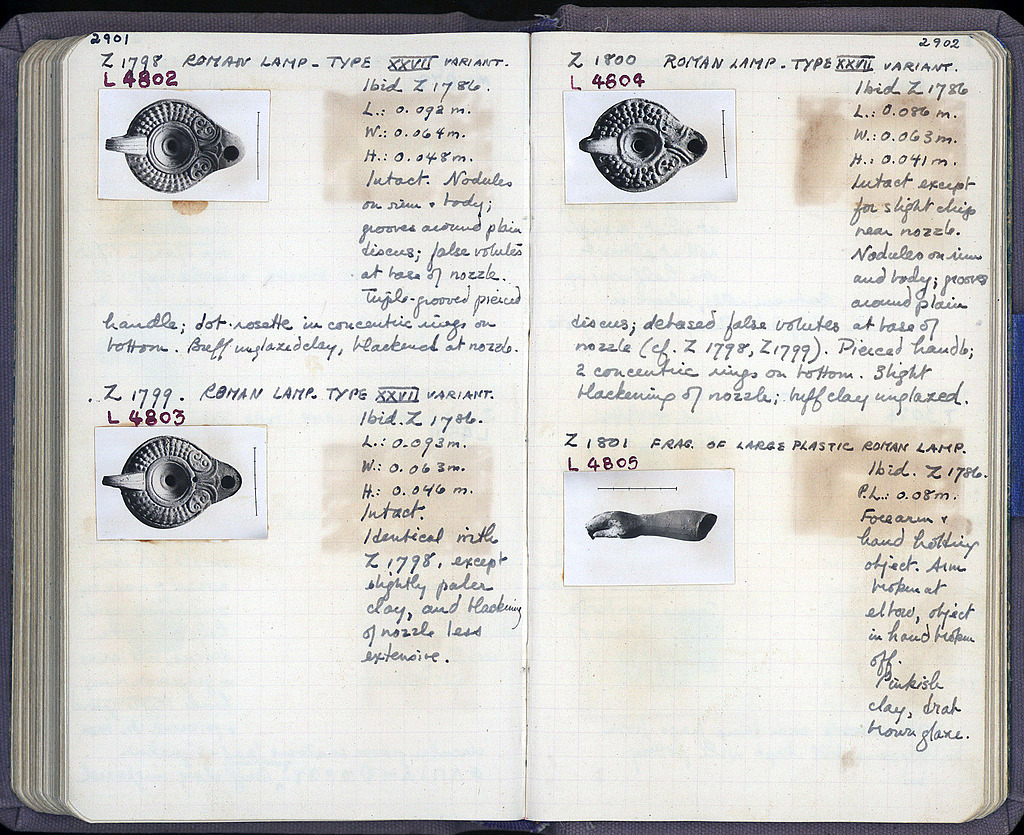 2901
Z 1798 ROMAN LAMP - TYPE XXVII VARIANT.
L 4802
Ibid Z 1786.
L.: 0.092 m.
W.: 0.064 m.
H.: 0.048 m.
Intact. Nodules
on rim & body;
grooves around plain
discus; false volutes
at base of nozzle.
Triple-grooved pierced
handle; dot-rosette in concentric rings on
bottom. Buff unglazed clay, blackened at nozzle.
Z 1799. ROMAN LAMP. TYPE XXVII VARIANT.
L 4803
Ibid. Z 1786.
L.: 0.093 m.
W.: 0.063 m.
H.: 0.046 m.
Intact.
Identical with
Z 1798, except
slightly paler
clay, and blackening
of nozzle less
extensive.
2902
Z 1800 ROMAN LAMP - TYPE XXVII VARIANT.
L 4804
Ibid Z 1786
L.: 0.086 m.
W.: 0.063 m.
H.: 0.041 m.
Intact except
for slight chip
near nozzle.
Nodules on rim
and body; grooves
around plain
discus; debased false volutes at base of
nozzle (cf. Z 1798, Z1799). Pierced handle;
2 concentric rings on bottom. Slight
blackening of nozzle; buff clay unglazed.
Z 1801 FRAG. OF LARGE PLASTIC ROMAN LAMP.
L 4805
Ibid. Z 1786.
P.L.: 0.08 m.
Forearm &
hand holding
object. Arm
broken at
elbow, object
in hand broken
off.
Pinkish
clay, drab
brown glaze.